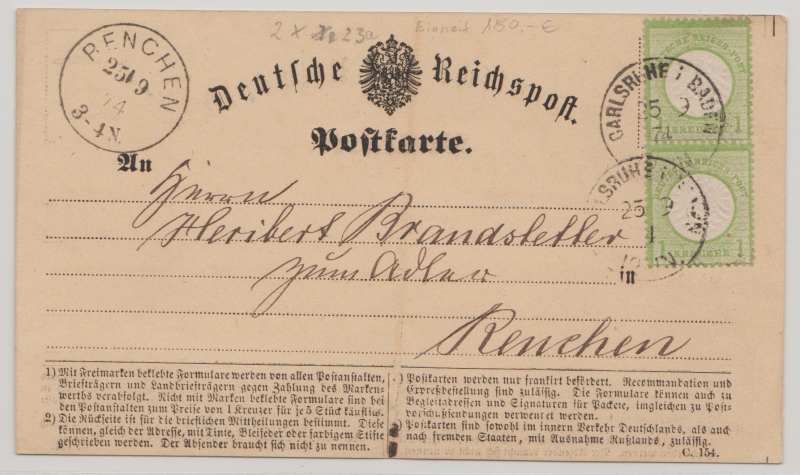 2 x 23a
Einheit 150,- €
RENCHEN
25 9
74
3-4 N.
Deutsche Reichspost.
Postkarte.
CARLSRUHE i. BADEN
25 9
74
1 KREUZER 1
25 9
1 KREUZER 1
An
Herrn
Heribert Brandstetter
zum Adler
in
Renchen
1) Mit Freimarken beklebte Formulare werden von allen Postanstalten,
Briefträgern und Landbriefträgern gegen Zahlung des Marken-
werths verabfolgt. Nicht mit Marken beklebte Formulare sind bei
den Postanstalten zum Preise von 1 Kreuzer für je 5 Stück käuflich.
2) Die Rückseite ist für die brieflichen Mittheilungen bestimmt. Diese
können, gleich der Adresse, mit Tinte, Bleifeder oder farbigem Stifte
geschrieben werden. Der Absender braucht sich nicht zu nennen.
) Postkarten werden nur frankirt befördert. Recommandation und
Expreßbestellung sind zulässig. Die Formulare können auch zu
Begleitadressen und Signaturen für Packete, imgleichen zu Post-
vorschußsendungen verwenet werden.
Postkarten sind sowohl im innern Verkehr Deutschlands, als auch
nach fremden Staaten, mit Ausnahme Rußlands, zulässig.
C. 154.